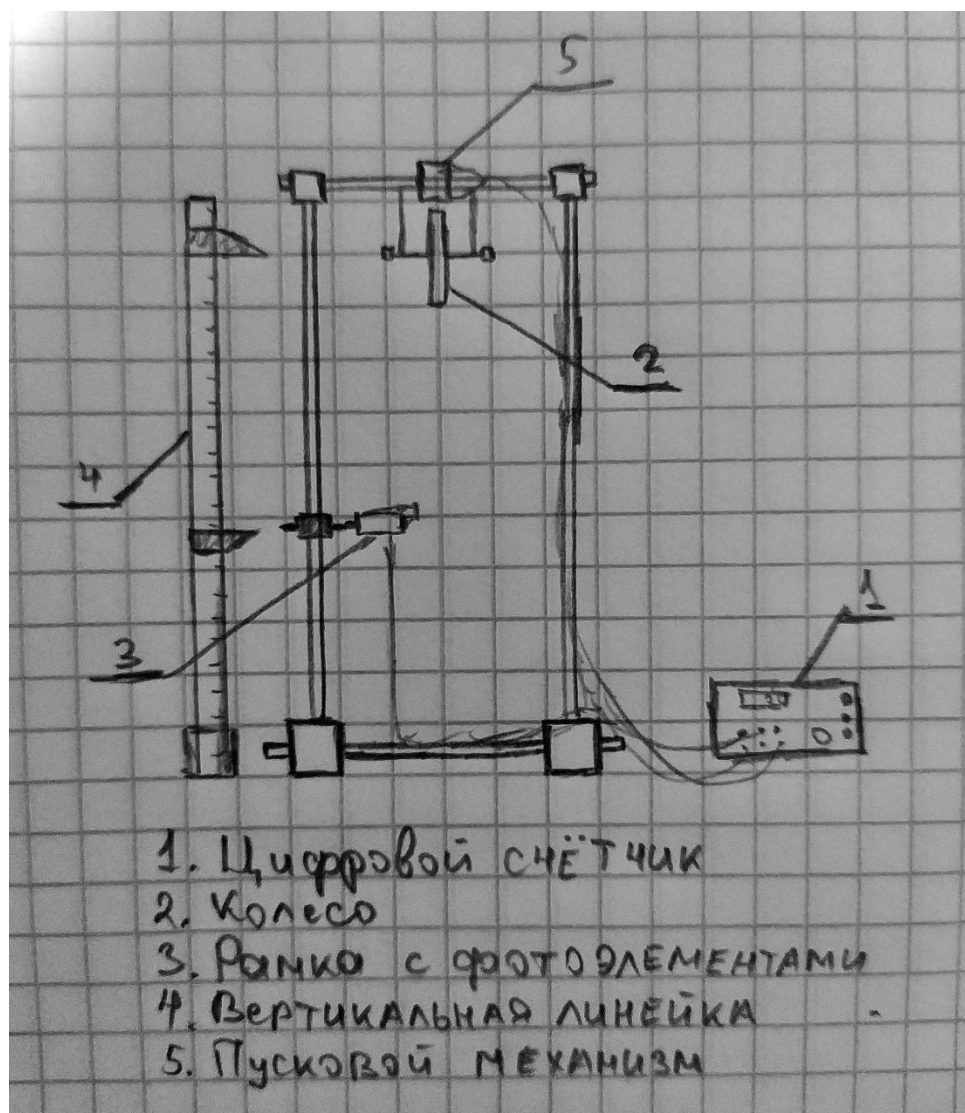 5
2
4
1
3
1. Цифровой счётчик
2. Колесо
3. Рамка с фотоэлементами
4. Вертикальная линейка
5. Пусковой механизм